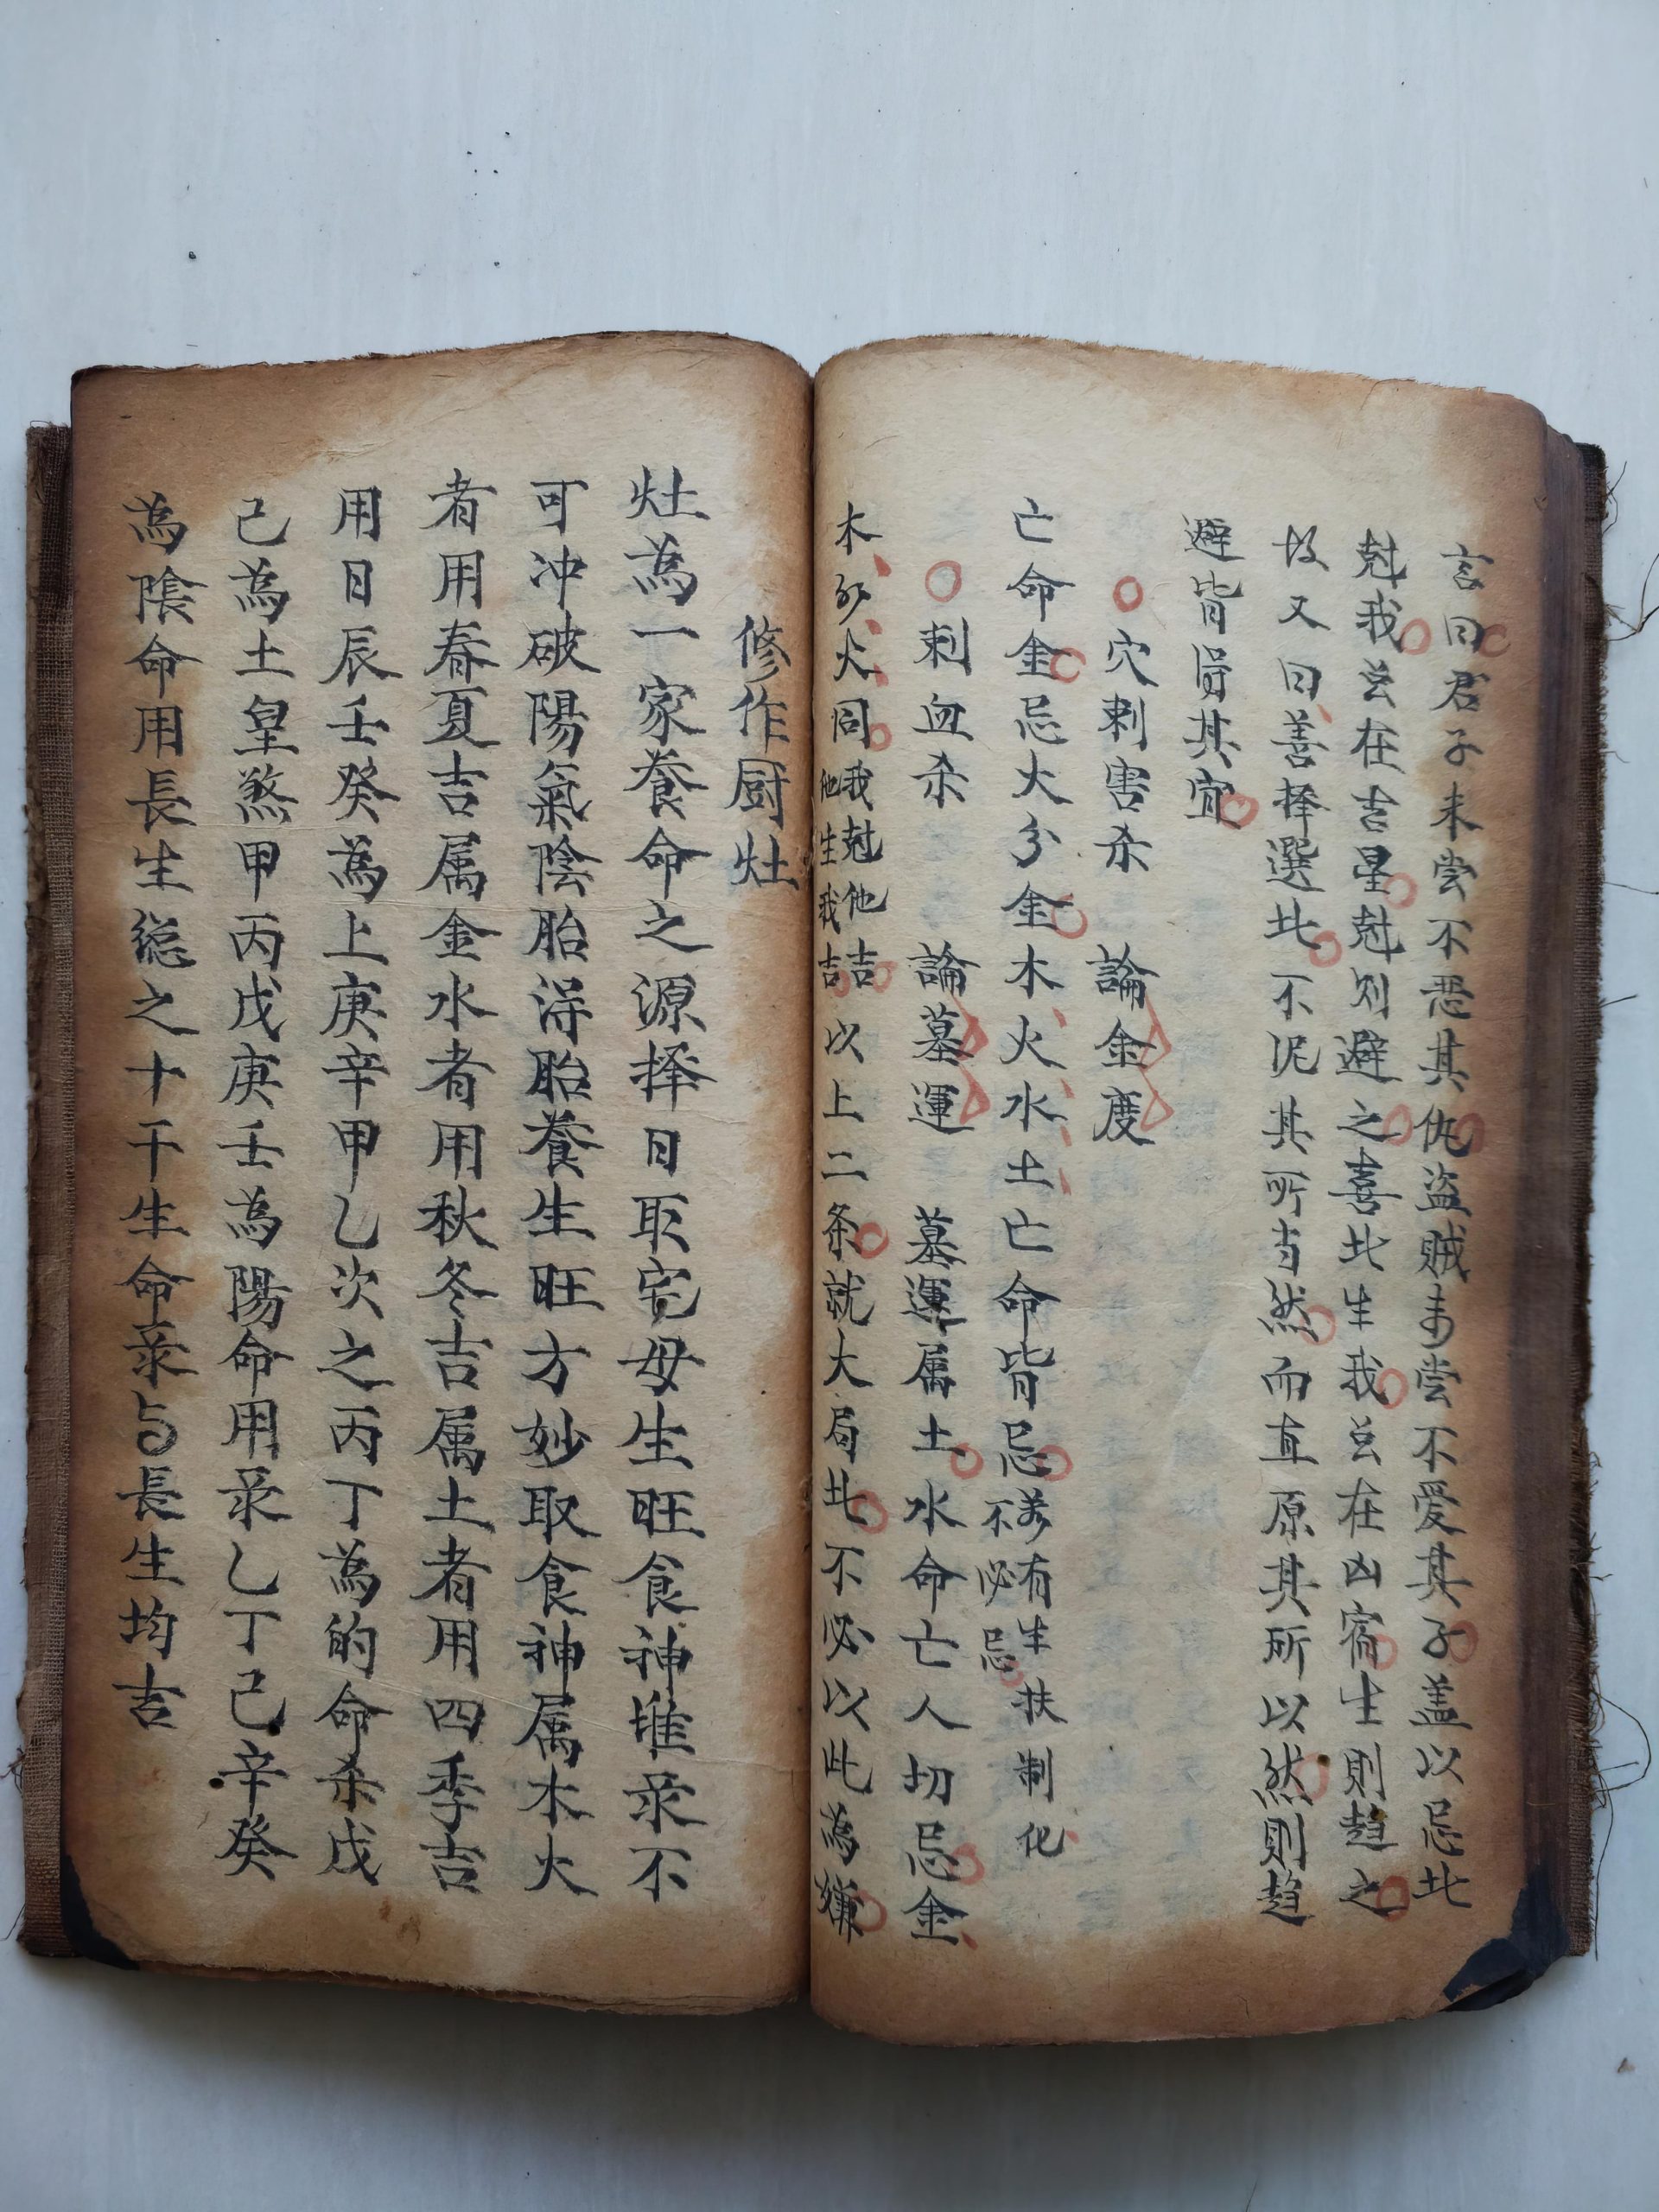 言曰君子未尝不恶其仇盗贼未尝不爱其子盖以忌此
尅我岂在吉星尅则避之喜此生我岂在凶宿生則趋之
故又曰善择選此不泥其所当然而直原其所以然則趋
避皆得其宜
○穴刺害杀 論金度
亡命金忌火分金木火水土亡命皆忌若有生扶制化
不必忌
○刺血杀 論墓運 墓運属土水命亡人切忌金
木 火同我尅他吉
他生我吉
以上二条就大局此不必以此為嫌
修作厨灶
灶為一家養命之源择日取宅母生旺食神堆录不
可冲破陽氣陰胎得胎養生旺方妙取食神属木火
者用春夏吉属金水者用秋冬吉属土者用四季吉
用日辰壬癸為上庚辛甲乙次之丙丁為的命杀戊
己為土皇煞甲丙戊庚壬為陽命用录乙丁己辛癸
為陰命用長生総之十干生命录与長生均吉